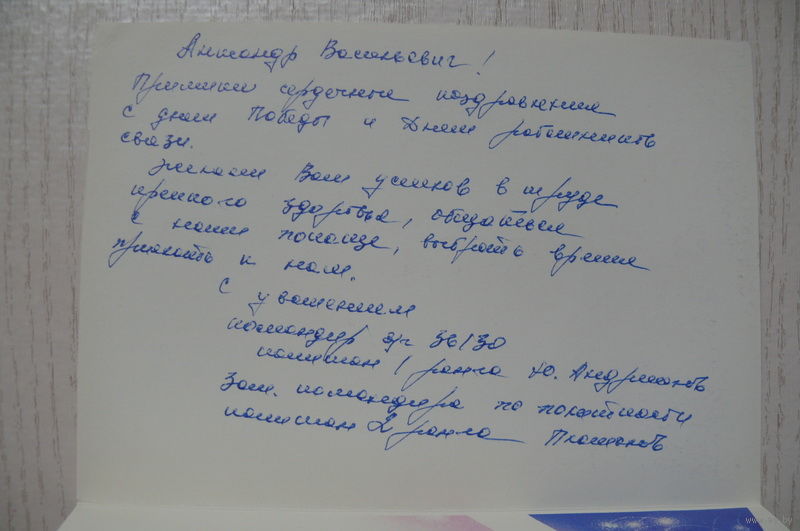 Александр Васильевич!
Примите сердечные поздравления
с днем Победы и Днем работников
связи.
Желаем Вам успехов в труде
крепкого здоровья, общаться
с нами почаще, выбрать время
приехать к нам.
С уважением
командир в/ч 36130
капитан 1 ранга Ю.
Зам. командира по политчасти
капитан 2 ранга